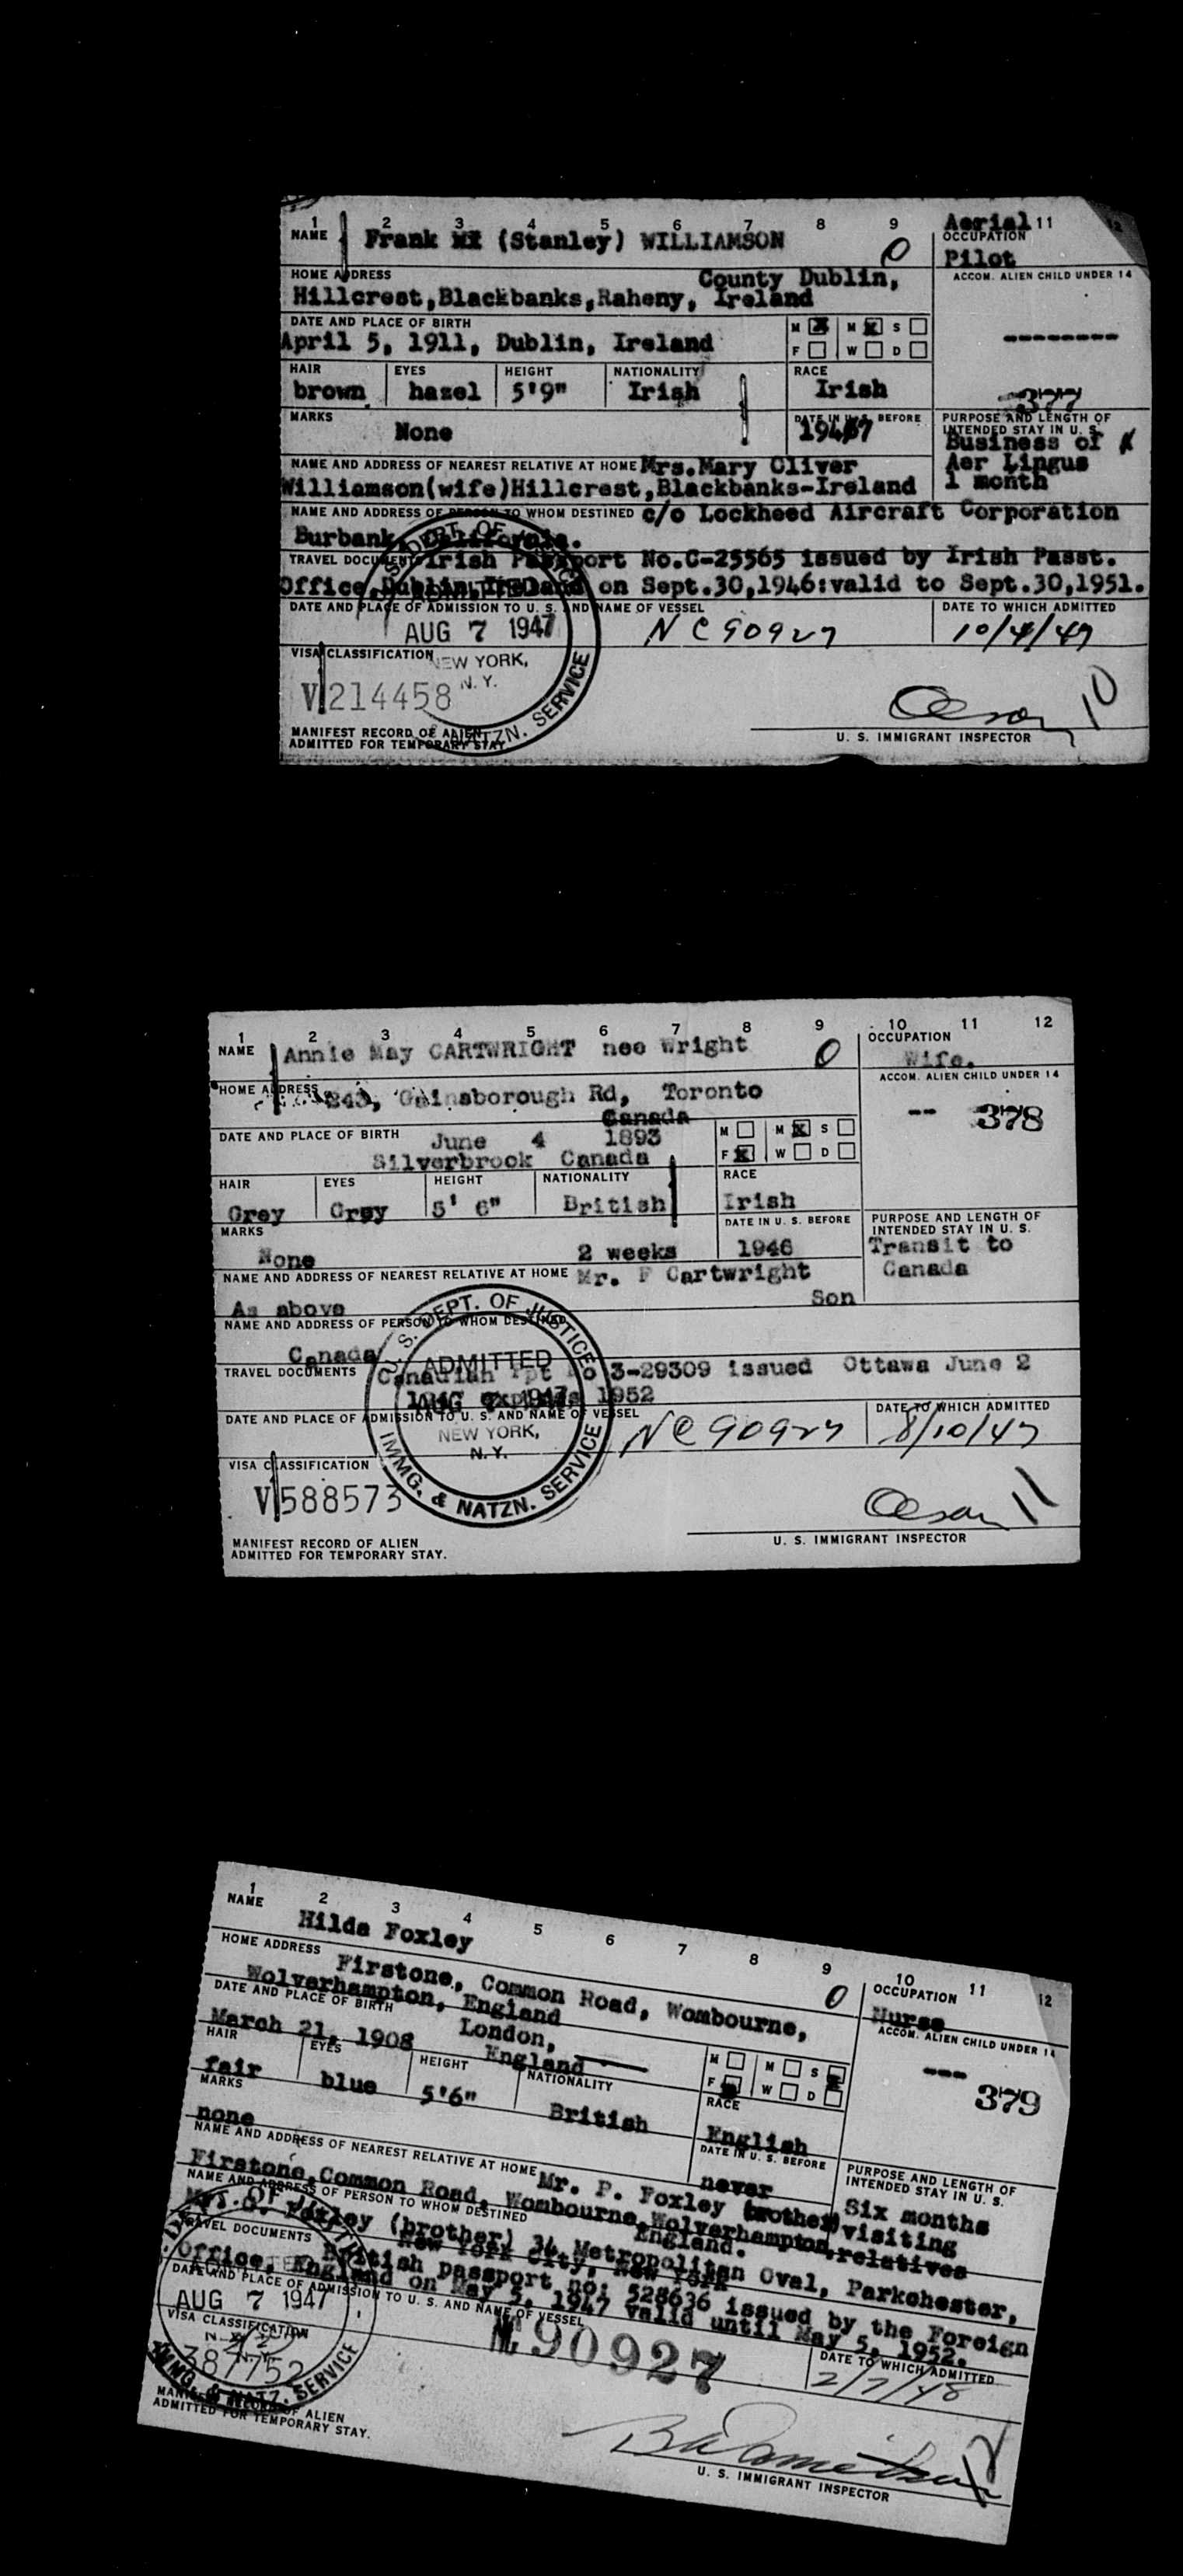 1 2 3 4 5 6 7 8 9 11 12
NAME Frank (Stanley) WILLIAMSON O
Aerial
OCCUPATION
Pilot
HOME ADDRESS County Dublin,
Hillcrest, Blackbanks, Raheny, Ireland
ACCOM. ALIEN CHILD UNDER 14
--------
DATE AND PLACE OF BIRTH
April 5, 1911, Dublin, Ireland
M X M X S
F W D
HAIR EYES HEIGHT NATIONALITY RACE
brown hazel 5'9" Irish Irish
377
MARKS
None
DATE IN U. S. BEFORE
PURPOSE AND LENGTH OF
INTENDED STAY IN U. S.
Business of
Aer Lingus
1 month
NAME AND ADDRESS OF NEAREST RELATIVE AT HOME Mrs. Mary Oliver
Williamson(wife)Hillcrest, Blackbanks-Ireland
NAME AND ADDRESS OF PERSON TO WHOM DESTINED c/o Lockheed Aircraft Corporation
Burbank, California.
TRAVEL DOCUMENTS Irish Passport No.C-25565 issued by Irish Passt.
Office, Dublin, Ireland on Sept.30,1946:valid to Sept.30,1951.
DATE AND PLACE OF ADMISSION TO U. S. AND NAME OF VESSEL
DATE TO WHICH ADMITTED
AUG 7 1947
NC90927
10/4/47
VISA CLASSIFICATION
NEW YORK,
N. Y.
V 214458
10
MANIFEST RECORD OF ALIEN
ADMITTED FOR TEMPORARY STAY
U. S. IMMIGRANT INSPECTOR
1 2 3 4 5 6 7 8 9 10 11 12
NAME Annie May CARTWRIGHT nee Wright O
OCCUPATION
Wife.
HOME ADDRESS 243, Gainsborough Rd, Toronto
Canada
ACCOM. ALIEN CHILD UNDER 14
-- 378
DATE AND PLACE OF BIRTH June 4 1893
Silverbrook Canada
M M X S
F X W D
HAIR EYES HEIGHT NATIONALITY RACE
Grey Grey 5' 6" British Irish
MARKS
None 2 weeks
DATE IN U. S. BEFORE
1946
PURPOSE AND LENGTH OF
INTENDED STAY IN U. S.
Transit to
Canada
NAME AND ADDRESS OF NEAREST RELATIVE AT HOME Mr. F Cartwright
As above Son
NAME AND ADDRESS OF PERSON TO WHOM DESTINED
Canada
TRAVEL DOCUMENTS Canadian Ppt No 3-29309 issued Ottawa June 2
1952
U. S. DEPT. OF JUSTICE
ADMITTED
AUG 7 1947
NEW YORK,
N. Y.
IMMG. & NATZN. SERVICE
DATE AND PLACE OF ADMISSION TO U. S. AND NAME OF VESSEL
NC90927
DATE TO WHICH ADMITTED
8/10/47
VISA CLASSIFICATION
V 588573
11
MANIFEST RECORD OF ALIEN
ADMITTED FOR TEMPORARY STAY.
U. S. IMMIGRANT INSPECTOR
1 2 3 4 5 6 7 8 9 10 11 12
NAME Hilda Foxley O
OCCUPATION
Nurse
HOME ADDRESS Firstone, Common Road, Wombourne,
Wolverhampton, England
ACCOM. ALIEN CHILD UNDER 14
--- 379
DATE AND PLACE OF BIRTH London,
March 21, 1908 England
M M S
F W D
HAIR EYES HEIGHT NATIONALITY RACE
fair blue 5'6" British English
MARKS
none
DATE IN U. S. BEFORE
never
PURPOSE AND LENGTH OF
INTENDED STAY IN U. S.
Six months
visiting
relatives
NAME AND ADDRESS OF NEAREST RELATIVE AT HOME Mr. P. Foxley (brother)
Firstone, Common Road, Wombourne, Wolverhampton,
England.
NAME AND ADDRESS OF PERSON TO WHOM DESTINED
Foxley (brother) 34 Metropolitan Oval, Parkchester,
New York City, New York
TRAVEL DOCUMENTS British passport no: 528636 issued by the Foreign
Office, England on May 5, 1947 valid until May 5, 1952.
DATE AND PLACE OF ADMISSION TO U. S. AND NAME OF VESSEL
AUG 7 1947
90927
DATE TO WHICH ADMITTED
2/7/48
VISA CLASSIFICATION
387752
IMMG. & NATZ. SERVICE
MANIFEST RECORD OF ALIEN
ADMITTED FOR TEMPORARY STAY.
12
U. S. IMMIGRANT INSPECTOR